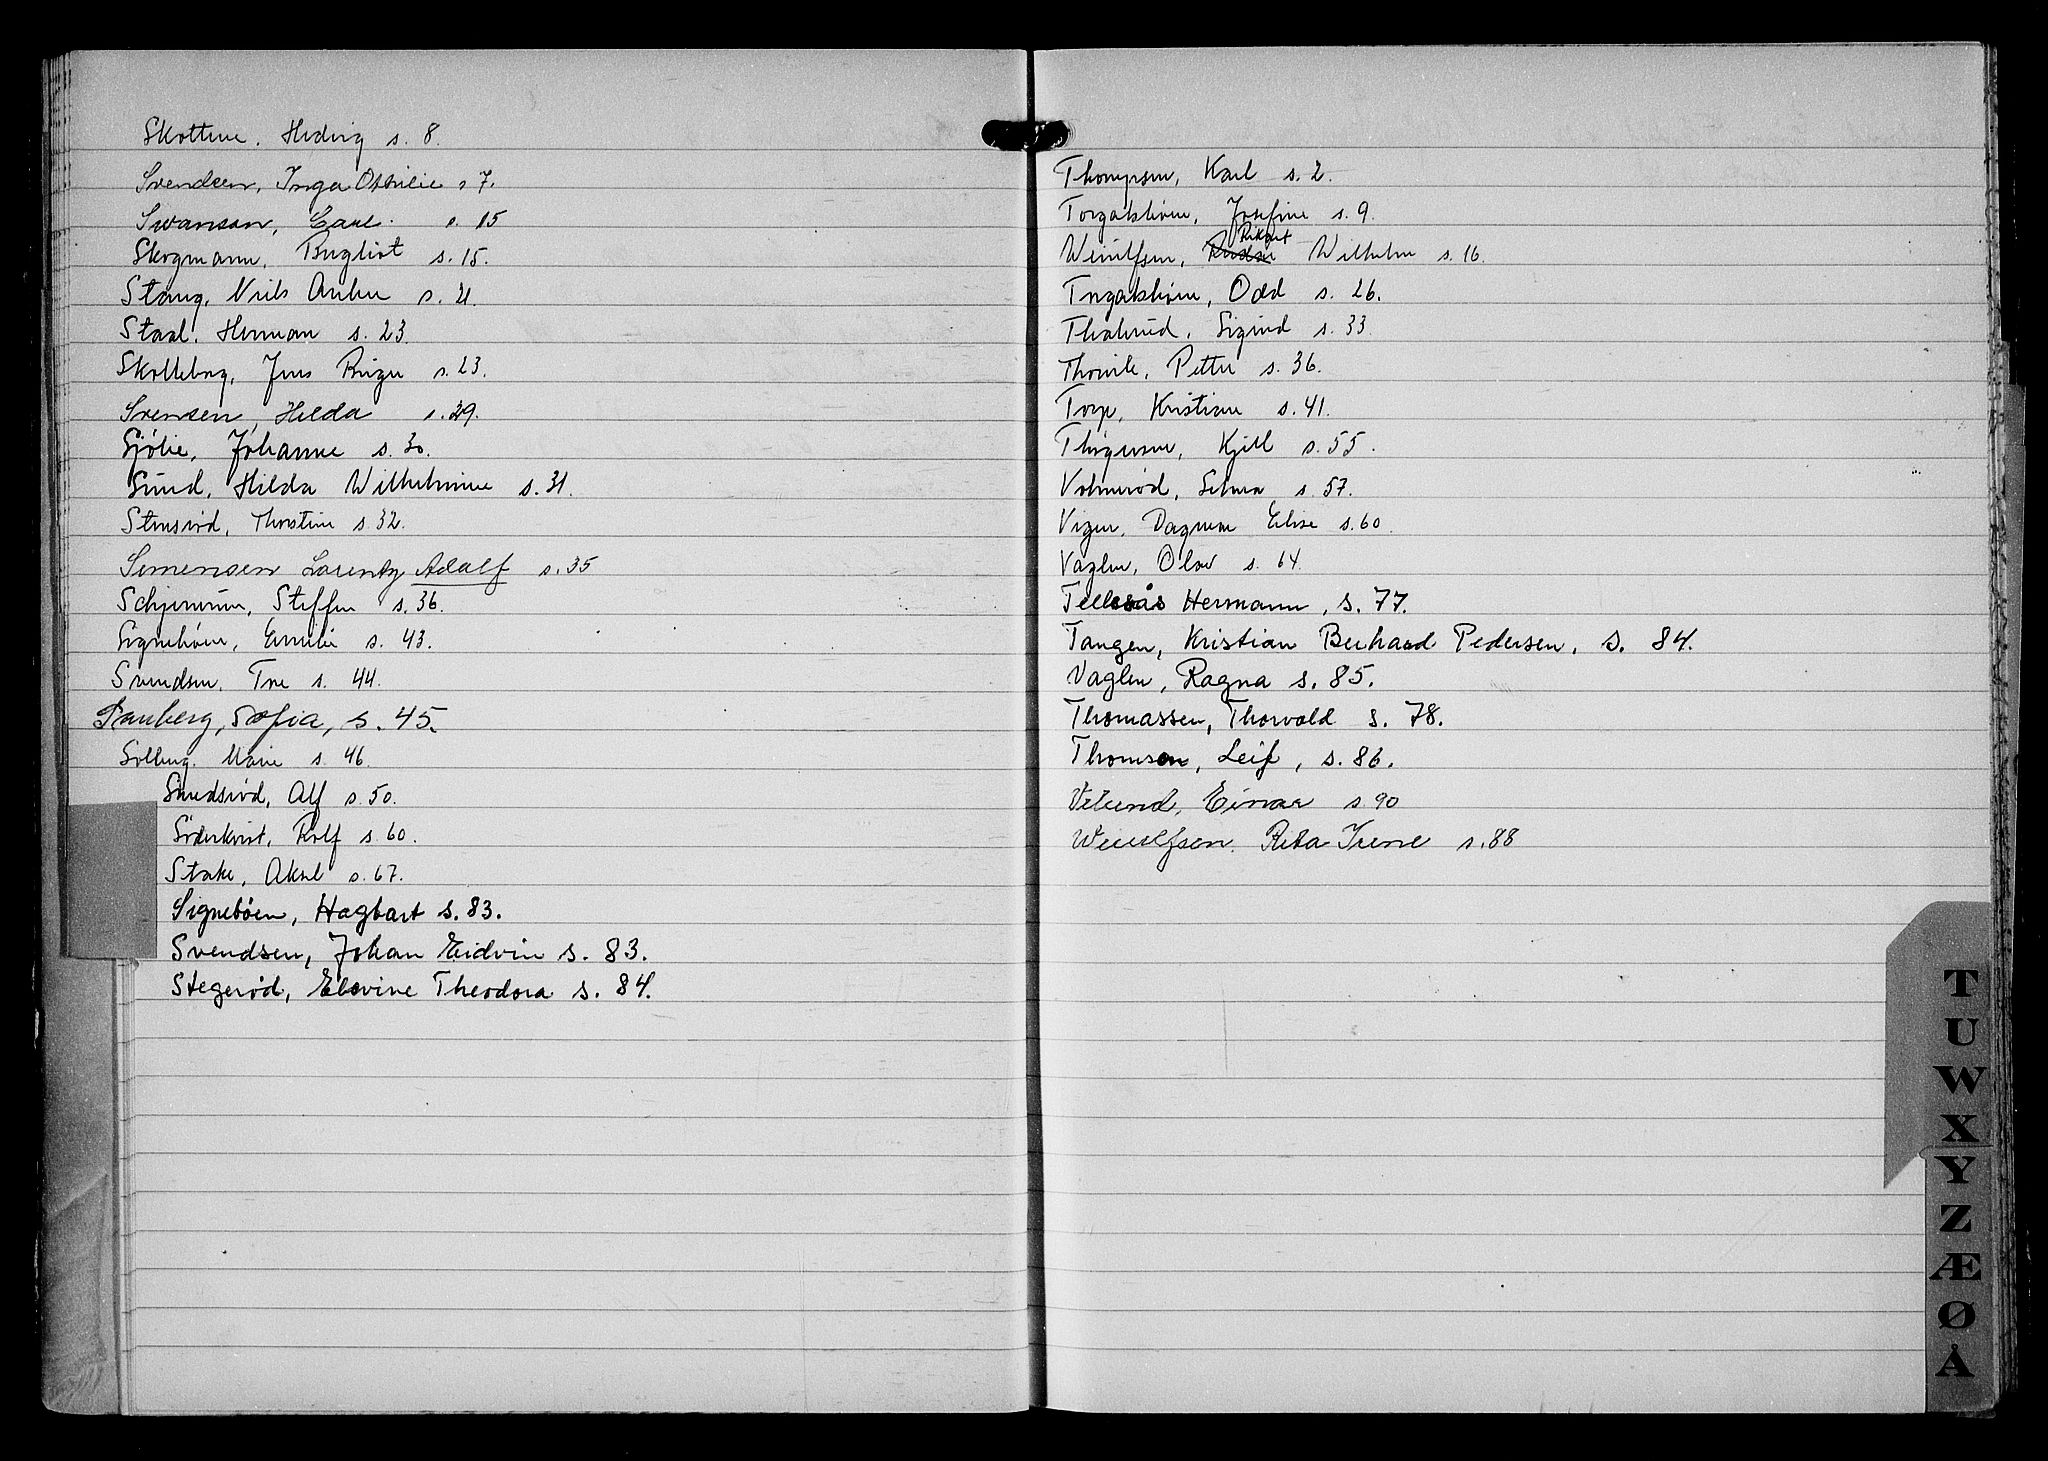 Skottene, Hedvig s. 8.
Svendsen, Inga Othilie s 7.
Swanson, Carl. s. 15
Skogmann, Bergliot s. 15.
Stang, Niels Anker s. 21.
Staal, Herman s. 23.
Skolleborg, Jens Birger s. 23.
Svensen, Hilda s. 29.
Sjölie, Johanne s. 30.
Sund, Hilda Wilhelmine s. 31.
Stensrød, Thorstein s. 32.
Simensen Lorentz Adolf s. 35
Steffen s. 36.
Signebøen, Emilie s. 43.
Svendsen, Tore s. 44.
Sanberg, Sofia, s. 45.
Solberg, Marie s. 46.
Sundsrød, Alf s. 50.
Söderkvist, Rolf s. 60.
Stake, Aksel s. 67.
Signebøen, Hagbart s. 83.
Svendsen, Johan Eidvin s. 83.
Stegerød, Elevine Theodora s. 84.
Thompsen, Karl s. 2.
Torgalsbøen, Josefine s. 9.
Rikart
Wiulfsen, Wilhelm s. 16.
Torgalsbøen, Odd s. 26.
Thalerud, Sigurd s. 33.
Petter s. 36.
Torp, Kristian s. 41.
Thorgersen, Kjell s. 55.
Volmerød, Selma s. 57.
Viger, Dagmar Elise s. 60.
Vaglen, Olav s. 64.
Tellesås Hermann, s. 77.
Tangen, Kristian Berhard Pedersen, s. 84.
Vaglen, Ragna s. 85.
Thomassen, Thorvald s. 78.
Thomson, Leif, s. 86.
Vilund, Einar s 90
Wiulfsen. Rita Irene s. 88
T
U
W
X
Y
Z
Æ
Ø
Å